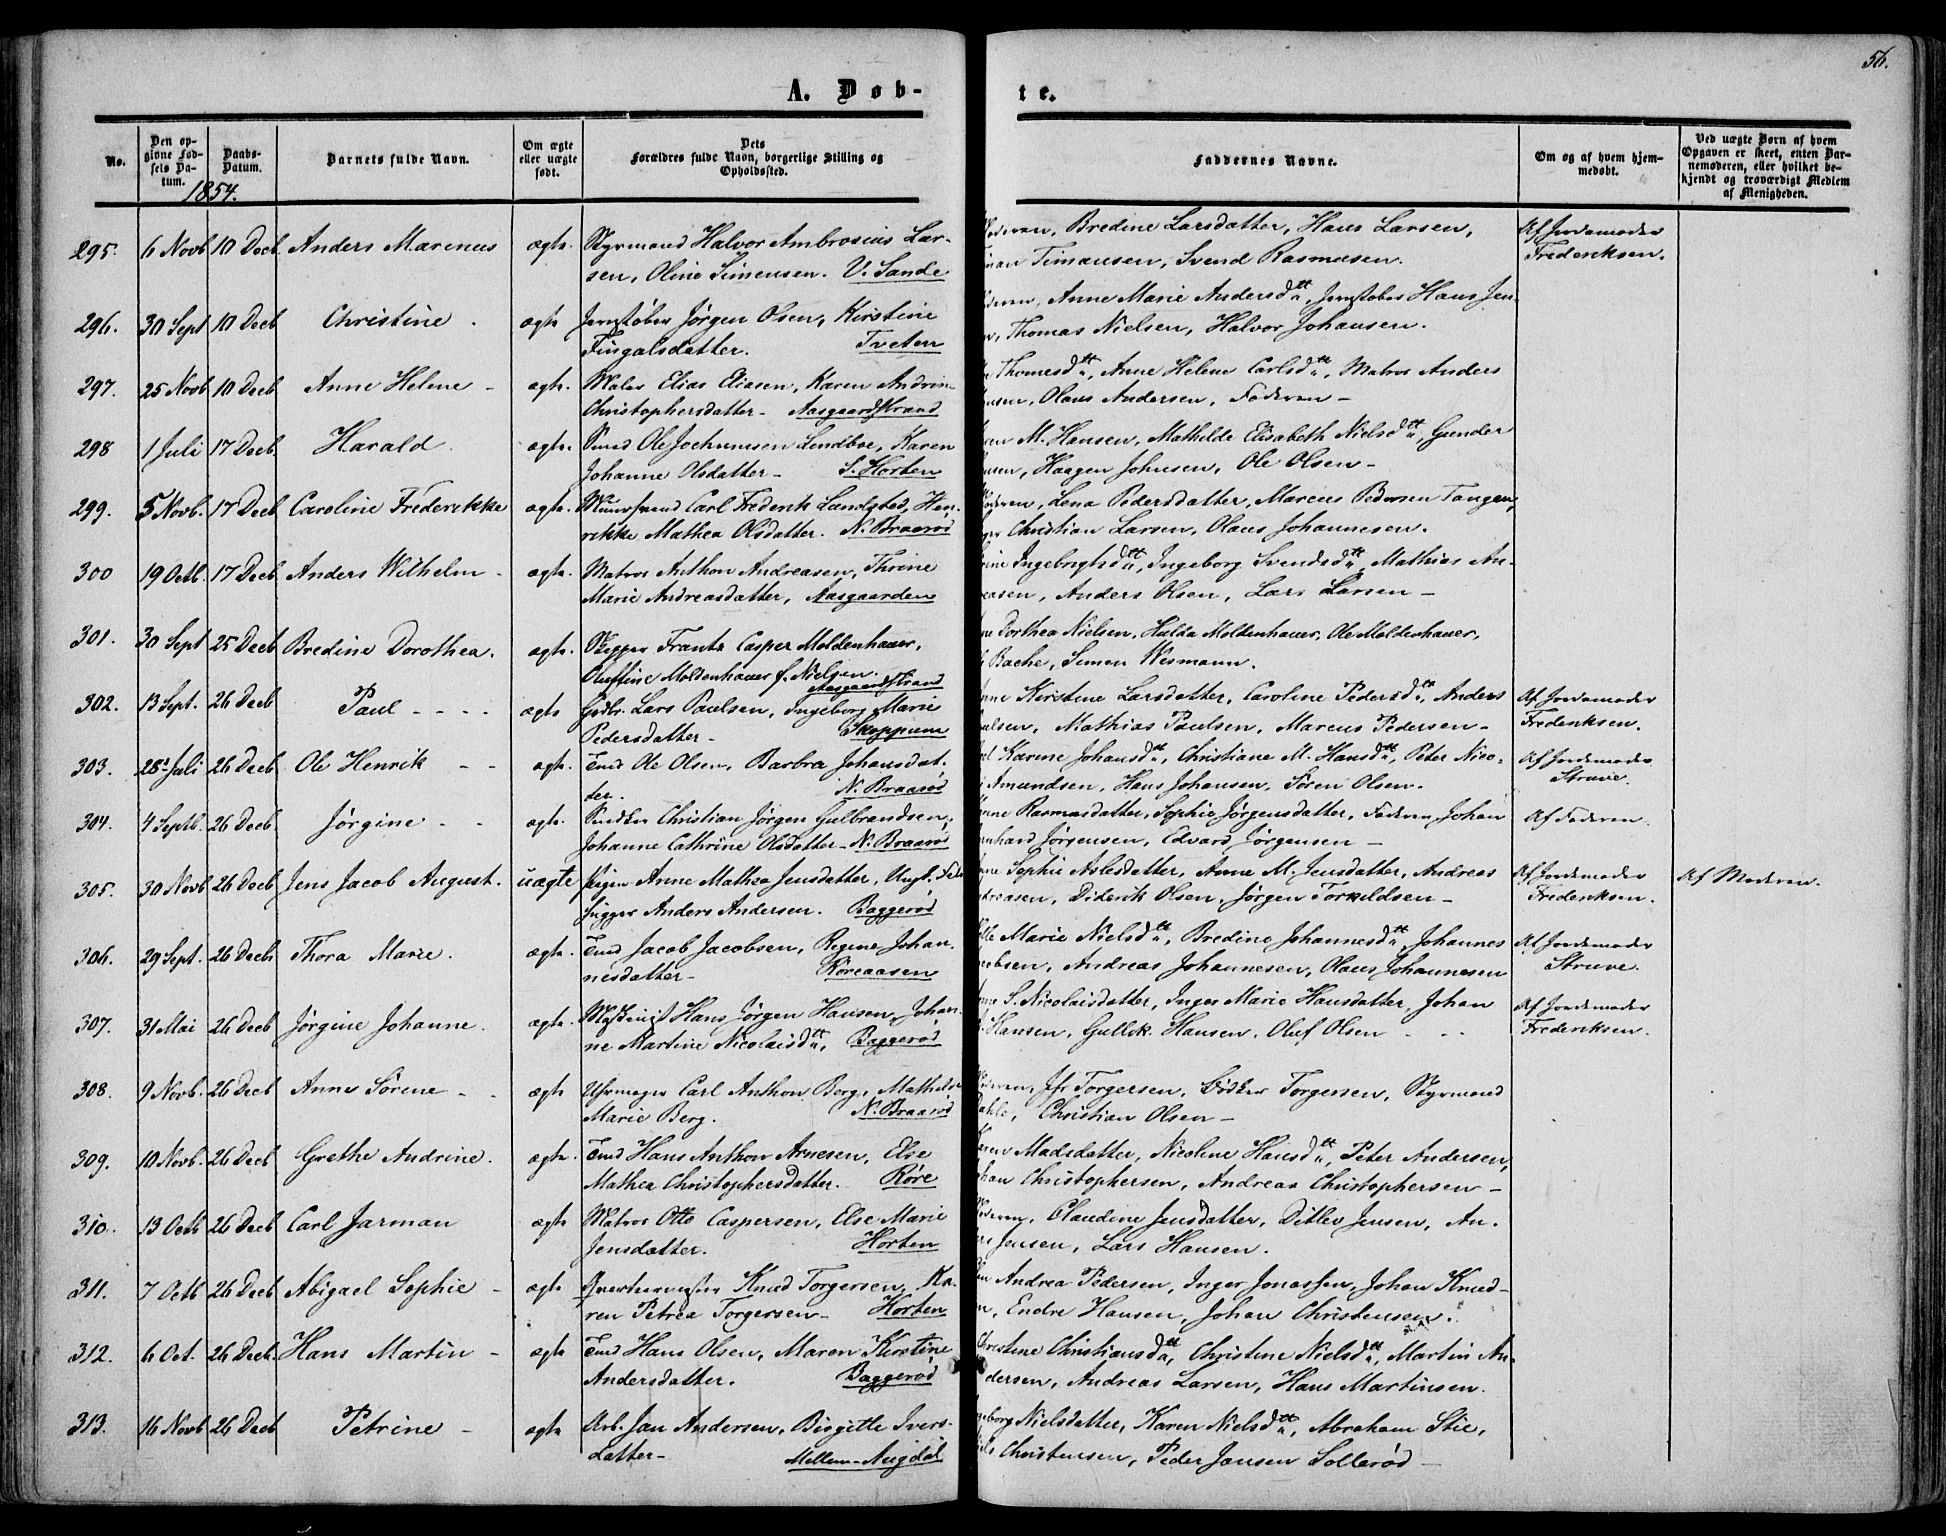 56.
A. Døb-
te.
No.
Den op-
givne Fød-
sels Da-
tum.
Daabs-
Datum.
Barnets fulde Navn.
Om ægte
eller uægte
født.
Dets
Forældres fulde Navn, borgerlige Stilling og
Opholdssted.
Faddernes Navne.
Om og af hvem hjem-
medøbt.
Ved uægte Børn af hvem
Opgaven er skeet, enten Bar-
nemoderen, eller hvilket be-
kjendt og troværdigt Medlem
af Menigheden.
1854.
295. 6 Novb 10 Decb Anders Marenus ægte. Styrmand Halvor Ambrosius Lar-
sen, Oline Simensen. V. Sande
Bredine Larsdatter, Hans Larsen,
Timansen, Svend Rasmusen.
Af Jordemoder
Frederiksen.
296. 30 Sept 10 Decb Christine. ægte Jernstøber Jørgen Olsen, Kirstine
Fingalsdatter. Tveten
Anne Marie Andersdtr, Jernstøber Hans Jen-
Thomas Nielsen, Halvor Johansen.
297. 25 Novb 10 Decb Anne Helene - ægte. Maler Elias Eliasen, Karen Andrine
Christophersdatter - Aasgaardstrand
Thomesdtr, Anne Helene Carlsdtr, Matros Anders
Olaus Andersen, Faderen -
298 1 Juli 17 Decb. Harald. ægte. Smed Ole Jochumsen Sendboe, Karen
Johanne Olsdatter - S. Horten
M. Hansen, Mathilde Elisabeth Nielsdtr, Gunder
Haagen Johnsen, Ole Olsen -
299. 5 Novb. 17 Decb Caroline Frederikke ægte. Muursvend Carl Frederik Lundqsted, Hen-
rikke Mathea Olsdatter. N. Braarød
Lena Pedersdatter, Marcus Pedersen Tangen,
Christian Larsen, Olaus Johannesen.
300 19 Octb. 17 Decb Anders Wilhelm - ægte. Matros Anthon Andreasen, Thrine
Marie Andreasdatter, Aasgaarden
Ingebrigtsdtr, Ingeborg Svendsdtr, Mathias An-
reasen, Anders Olsen, Lars Larsen -
301. 30 Sept 25 Decb Bredine Dorothea. ægte. Skipper Frantz Casper Moldenhauer,
Oluffine Moldenhauer f. Nielsen.
Aasgaardstrand
Dorthea Nielsen, Hulda Moldenhauer, Ole Moldenhauer,
Bache, Simen Wesmann.
302. 13 Sept. 26 Decb Paul - - - - ægte Gdbr. Lars Paulsen, Ingeborg Marie
Pedersdatter - Skoppum
Kirstine Larsdatter, Caroline Pedersdtr, Anders
Mathias Paulsen, Marcus Pedersen -
Af Jordemoder
Frederiksen.
303. 28 Juli 26 Decb Ole Henrik - - ægte. Tmd Ole Olsen, Barbra Johansdat-
ter. N. Braarød
Karine Johansdtr, Christiane M. Hansdtr, Peter Nico-
Amundsen, Hans Johansen, Sören Olsen.
Af Jordemoder
Struve.
304. 4 Septb. 26 Decb Jørgine - - ægte. Snedker Christian Jørgen Gulbrandsen,
Johanne Cathrine Olsdatter - N. Braarød
Rasmusdatter, Sophie Jørgensdatter, Faderen, Johan
Jørgensen, Edvard Jørgensen -
Af Faderen.
305. 30 Novb 26 Decb Jens Jacob August. uægte Pigen Anne Mathea Jensdatter, Ungk.
Anders Andersen. Baggerød
Sophie Aslesdatter, Anne M. Jensdatter, Andreas
Diderik Olsen, Jørgen Torkildsen -
Af Jordemoder
Frederiksen.
Af Moderen.
306. 29 Sept. 26 Decb Thora Marie. ægte. Tmd Jacob Jacobsen, Regine Johan-
nesdatter - Røreaasen
Marie Nielsdtr, Bredine Johannesdtr, Johannes
Andreas Johannesen, Olaus Johannesen
Af Jordemoder
Struve.
307. 31 Mai 26 Decb Jörgine Johanne. ægte. Maskinist Hans Jørgen Hansen, Johan-
ne Martine Nicolaisdtr, Baggerød
S. Nicolaisdatter, Inger Marie Hansdatter, Johan
Hansen, Gullik Hansen, Oluf Olsen - - -
Af Jordemoder
Frederiksen.
308. 9 Novb. 26 Decb Anne Sørene - - ægte Uhrmager Carl Anthon Berg, Mathilde
Marie Berg. N. Braarød
Jfr Torgersen, Bødker Torgersen, Styrmand
Christian Olsen -
309. 10 Novb. 26 Decb Grethe Andrine. ægte. Tmd Hans Anthon Arnesen, Else
Mathea Christophersdatter. Röre
Madsdatter, Nicoline Hansdtr, Peter Andersen,
Christophersen, Andreas Christophersen -
310. 13 Octb 26 Decb Carl Jarman ægte Matros Otto Caspersen, Else Marie
Jensdatter. Horten
Claudine Jensdatter, Ditlev Jensen, An-
Jensen, Lars Hansen.
311. 7 Octb 26 Decb Abigael Sophie - ægte Knud Torgersen, Ka-
ren Petrea Torgersen - Horten
Andrea Pedersen, Inger Jonassen, Johan Knud-
Endre Hansen, Johan Christensen.
312. 6 Oct. 26 Decb. Hans Martin - ægte Tmd Hans Olsen, Maren Kirstine
Andersdatter. Baggerød
Christiansdtr, Christine Nielsdtr, Martin An-
dersen, Andreas Larsen, Hans Martinsen.
313. 16 Novb 26 Decb Petrine - ægte Arb. Jan Andersen, Birgitte Ivers-
datter - Mellem-Augdal
Nielsdatter, Karen Nielsdtr, Abraham Stie,
Christensen, Peder Jansen Sollerød -